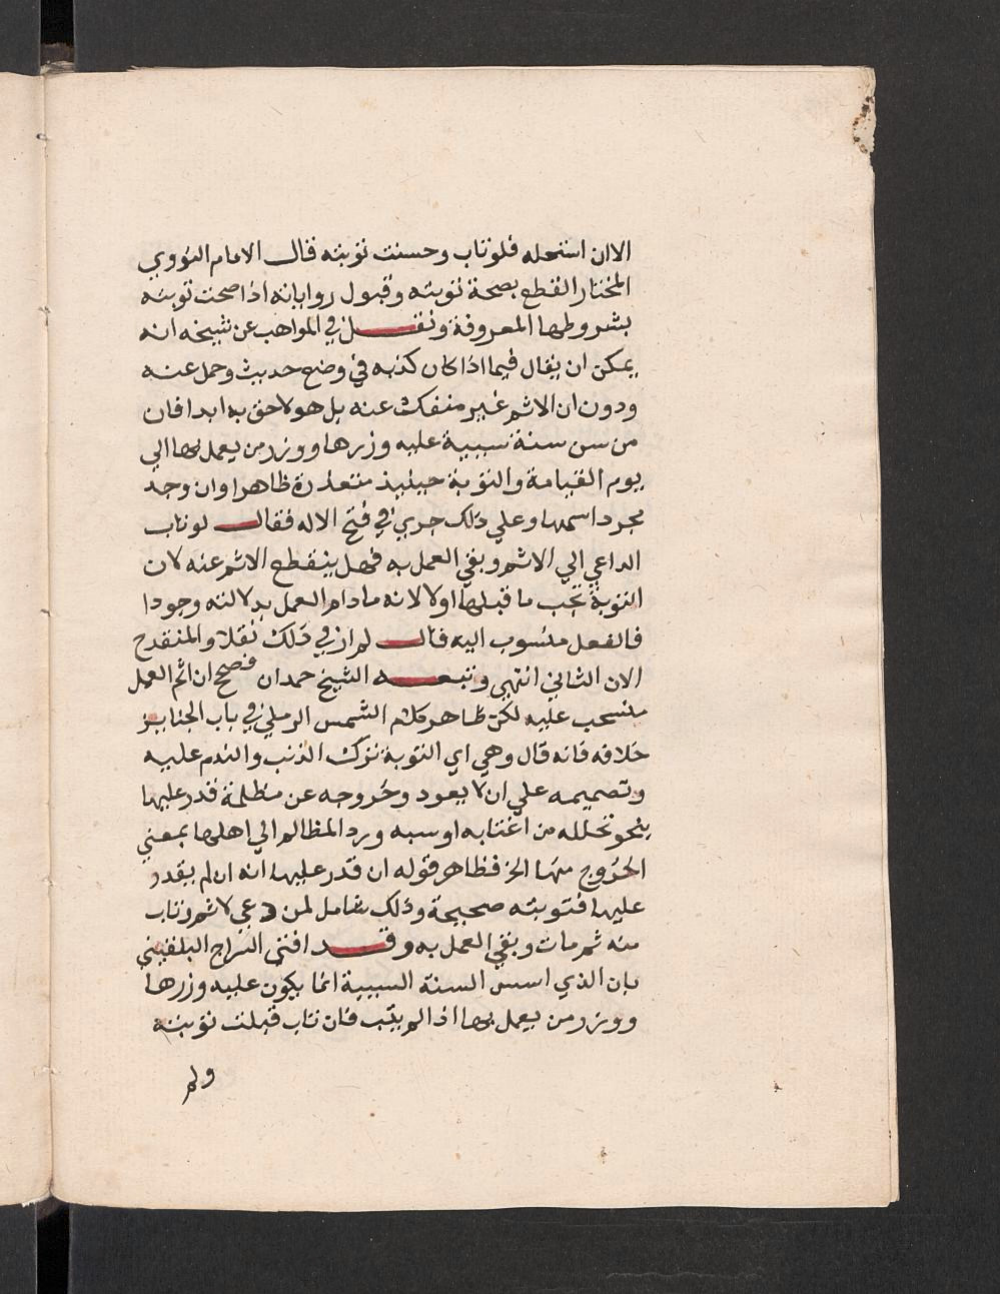 الا ان استحله فلو تاب وحسنت توبته قال الامام النووي
المختار القطع بصحة توبته وقبول رواياته اذا صحت توبته
بشروطها المعروفة ونقل في المواهب عن شيخه انه
يمكن ان يقال فيما اذا كان كذبه في وضع حديث وحمل عنه
ودون ان الاثم غير منفكك عنه بل هو لاحق به ابدا فان
من سن سنة سيية عليه وزرها ووزر من يعمل بها الي
يوم القيامة والتوبة حينيذ متعذرة ظاهرا وان وجد
مجرد اسمها وعلي ذلك جري في فتح الاله فقال لو تاب
الداعي الي الاثم وبقي العمل به فهل ينقطع الاثم عنه لان
التوبة تجب ما قبلها اولا لانه مادام العمل بدلالته وجودا
فالفعل منسوب اليه قال لم ار في ذلك نقلا والمنقدح
الان الثاني انتهي وتبعه الشيخ حمدان فصح ان اثم العمل
منسحب عليه لكن ظاهر كلام الشمس الرملي في باب الجنايز
خلافه فانه قال وهي اي التوبة ترك الذنب والندم عليه
وتصميمه علي ان لا يعود وخروجه عن مظلمة قدر عليها
بنحو تحلله من اغتابه او سبه ورد المظالم الي اهلها بمعني
الخروج منها الخ فظاهر قوله ان قدر عليها انه ان لم يقدر
عليها فتوبته صحيحة وذلك شامل لمن دعي لاثم وتاب
منه ثم مات وبقي العمل به وقد افتي السراج البلقيني
بان الذي اسس السنة السيية انما يكون عليه وزرها
ووزر من يعمل بها اذا لم يتب فان تاب قبلت توبته
ولم